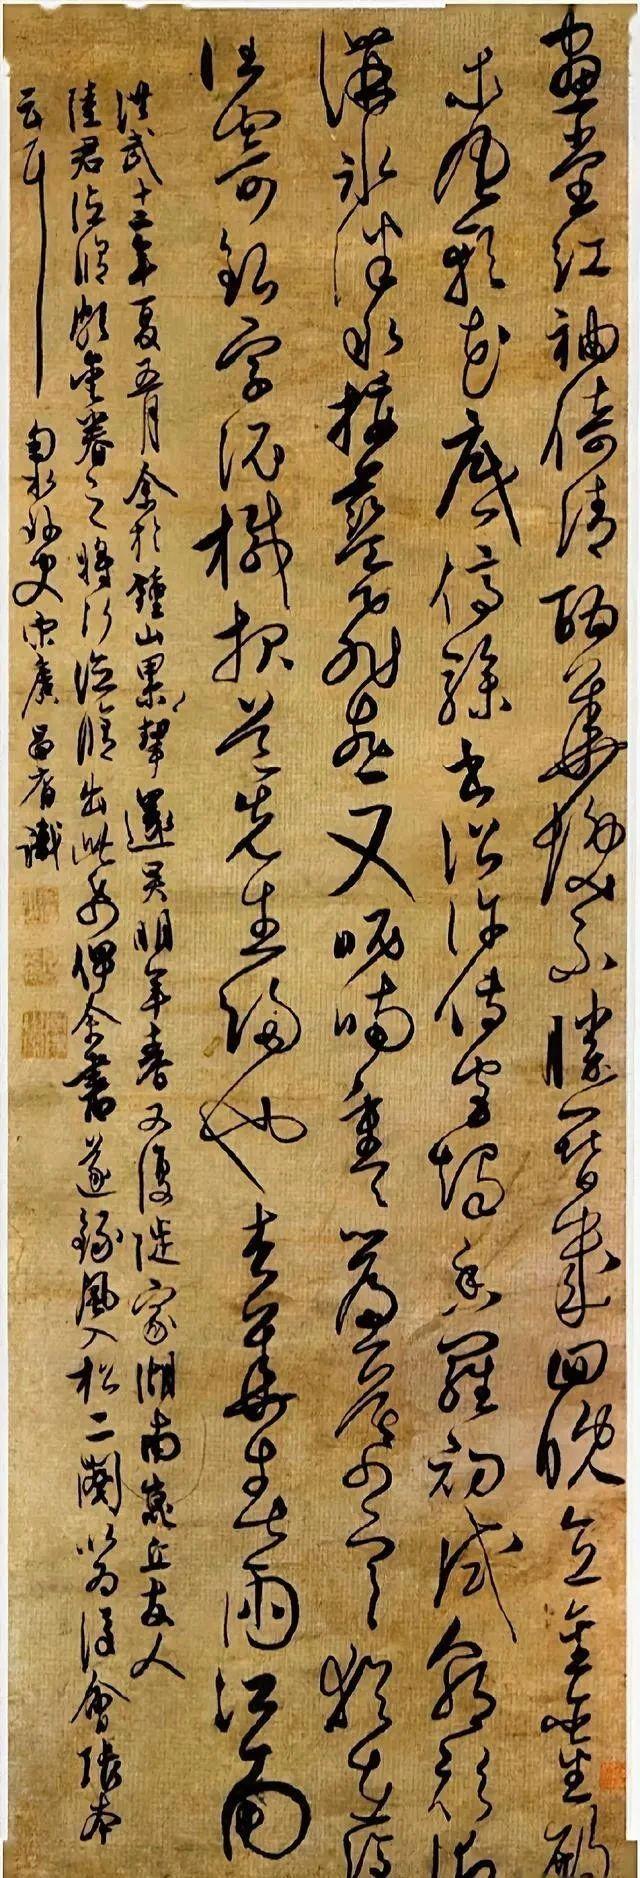 畫堂紅袖倚清酣華髮不勝簪幾回晚直金鑾殿
東風軟花底停驂書詔許傳宮燭香羅初試朝衫御
溝冰泮水挼藍飛燕又呢喃重重簾幕寒猶在
誰寄銀字泥緘報道先生歸也杏華春雨江南
洪武十三年夏五月余於鍾山累挈還吳明年春又復徙家湖南嵩丘友人
陸君德脩眷之將行德脩出此俾余書遂錄風入松二闋以為後會張本
云耳 外史宋廣昌裔識